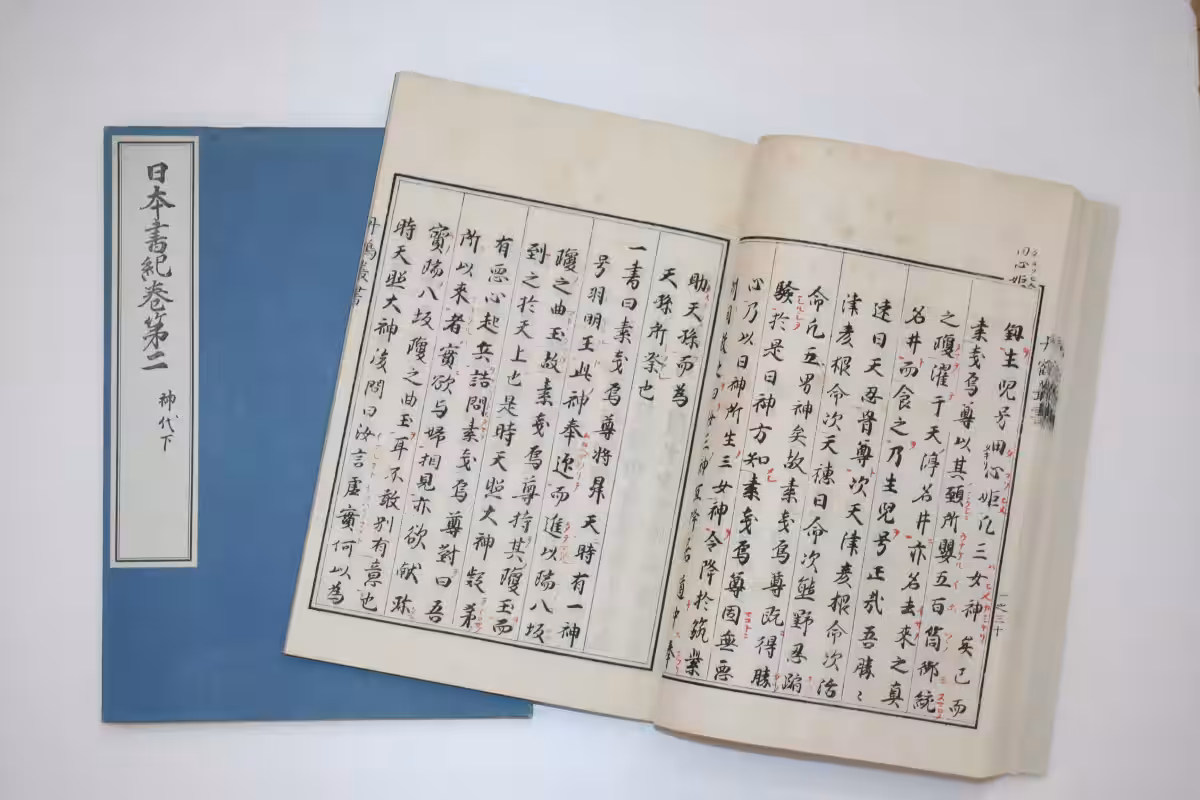 日本書紀巻第二
神代下
釼生兒号田心姫凡三女神矣已而
素戔嗚尊以其頸所嬰五百箇御統
之瓊濯于天渟名井亦名去來之真
名井而食之乃生兒号正哉吾勝〻
速日天忍骨尊次天津彦根命次活
津彦根命次天穂日命次熊野忍蹈
命凡五男神矣故素戔嗚尊既得勝
驗於是日神方知素戔嗚尊固無悪
心乃以日神所生三女神令降於筑紫
道中奉
助天孫而為
天孫所祭也
一書曰素戔嗚尊将昇天時有一神
号羽明玉此神奉迎而進以瑞八坂
瓊之曲玉故素戔嗚尊持其瓊玉而
到之於天上也是時天照大神疑弟
有悪心起兵詰問素戔嗚尊對曰吾
所以来者實欲与姉相見亦欲献珎
寳瑞八坂瓊之曲玉耳不敢別有意也
時天照大神復問曰汝言虚實何以為
一之三十